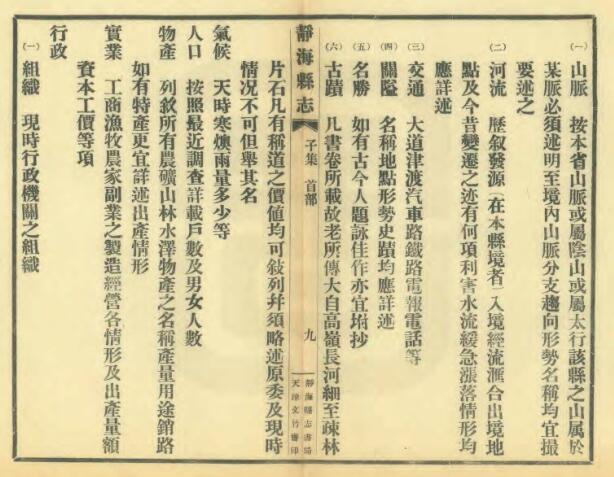 (一) 山脈　按本省山脈或屬陰山或屬太行該縣之山屬於
某脈必須述明至境內山脈分支趨向形勢名稱均宜撮
要述之
(二) 河流　歷叙發源（在本縣境者）入境經流滙合出境地
點及今昔變遷之迹有何項利害水流緩急漲落情形均
應詳述
(三) 交通　大道津渡汽車路鐵路電報電話等
(四) 關隘　名稱地點形勢史蹟均應詳述
(五) 名勝　如有古今人題詠佳作亦宜坿抄
(六) 古蹟　凡書卷所載故老所傳大自高嶺長河細至疎林
靜海縣志　子集　首部　九
靜海縣志書局
天津文竹齋印
片石凡有稱道之價値均可敍列幷須略述原委及現時
情况不可但舉其名
氣候　天時寒燠雨量多少等
人口　按照最近調查詳載戶數及男女人數
物產　列敘所有農礦山林水澤物產之名稱產量用途銷路
如有特產更宜詳述出產情形
實業　工商漁牧農家副業之製造經營各情形及出產量額
資本工價等項
行政
(一) 組織　現時行政機關之組織